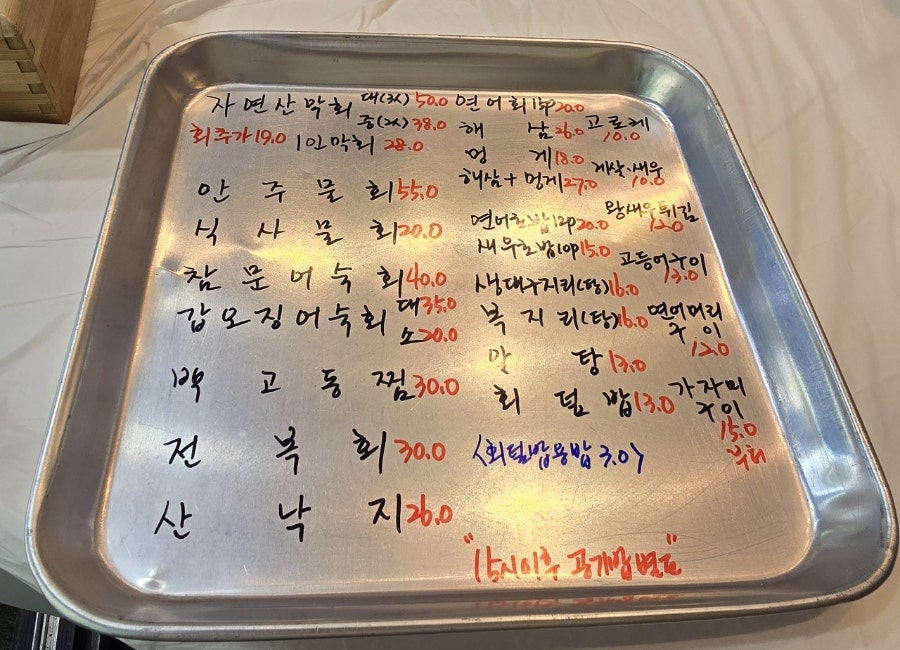 자연산막회 대(3人) 50.0
중(2人) 38.0
회추가 19.0 1인막회 28.0
안주물회 55.0
식사물회 20.0
참문어숙회 40.0
갑오징어숙회 대 35.0
소 20.0
백고동찜 30.0
전복회 30.0
산낙지 26.0
연어회 15p 20.0
해삼 26.0
멍게 18.0
해삼+멍게 27.0
연어초밥 12p 20.0
새우초밥 10p 15.0
생대구지리(탕) 16.0
복지리(탕) 16.0
알탕 13.0
회덮밥 13.0
<회덮밥용밥 3.0>
고로케
10.0
게살·새우
10.0
왕새우튀김
12.0
고등어구이
13.0
연어머리
구이
12.0
가자미
구이
15.0
부터
"15시이후 공기밥별도"